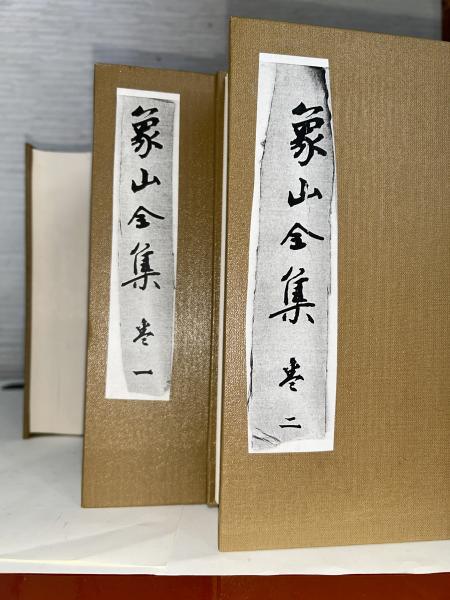 象山全集 卷一
象山全集 卷二